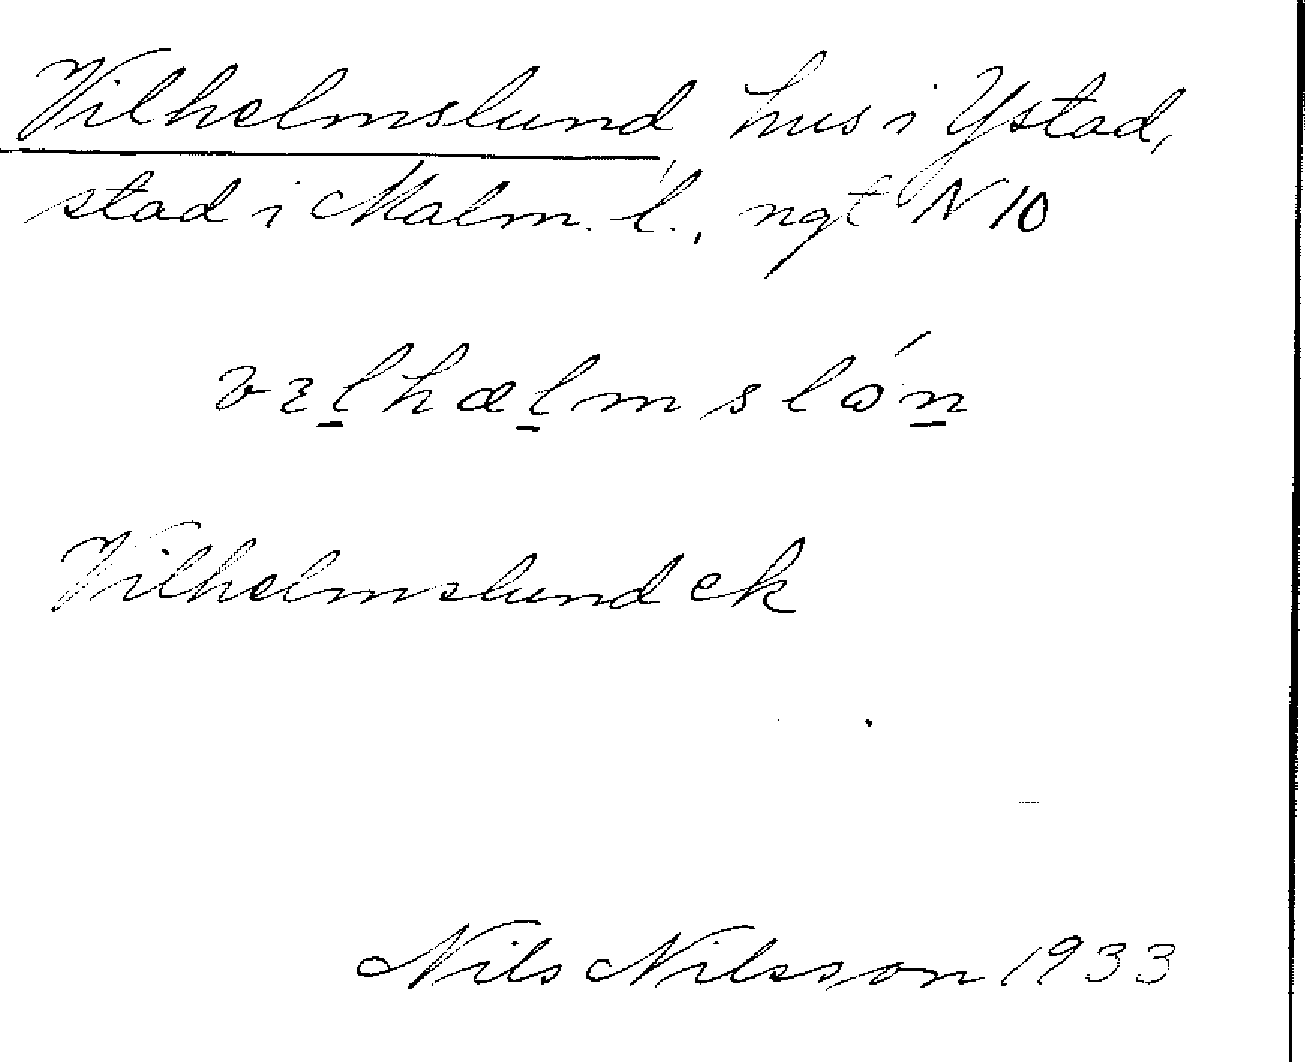 Vilhelmslund, hus i Ystad,
stad i Malm. l., ngt N 10
vɛl̲hæl̲mslón̲
Vilhelmslund ek
Nils Nilsson 1933